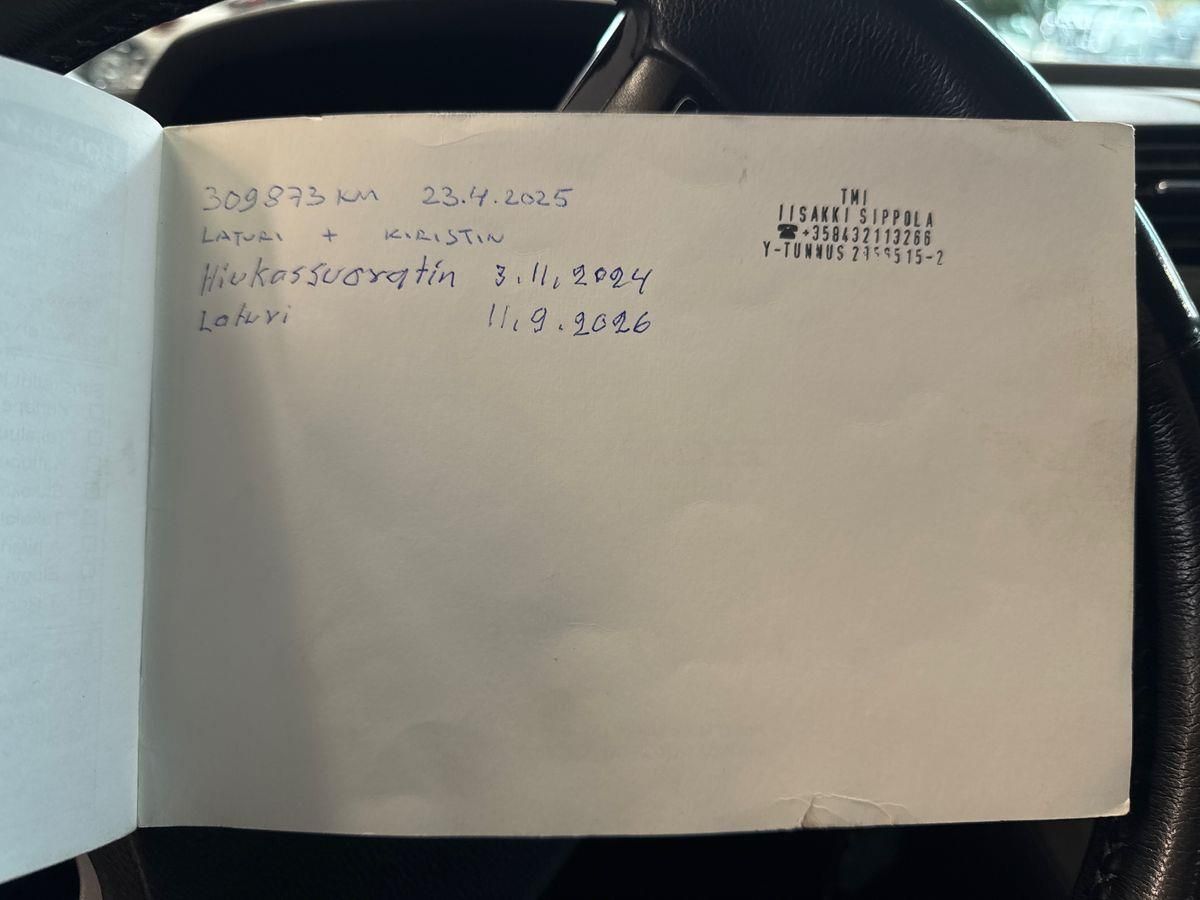 309873 KM 23.4.2025
LATURI + KIRISTIN
Hiukassuoratin 3.11.2024
Laturi 11.9.2026
TMI
IISAKKI SIPPOLA
☎+358432113266
Y-TUNNUS